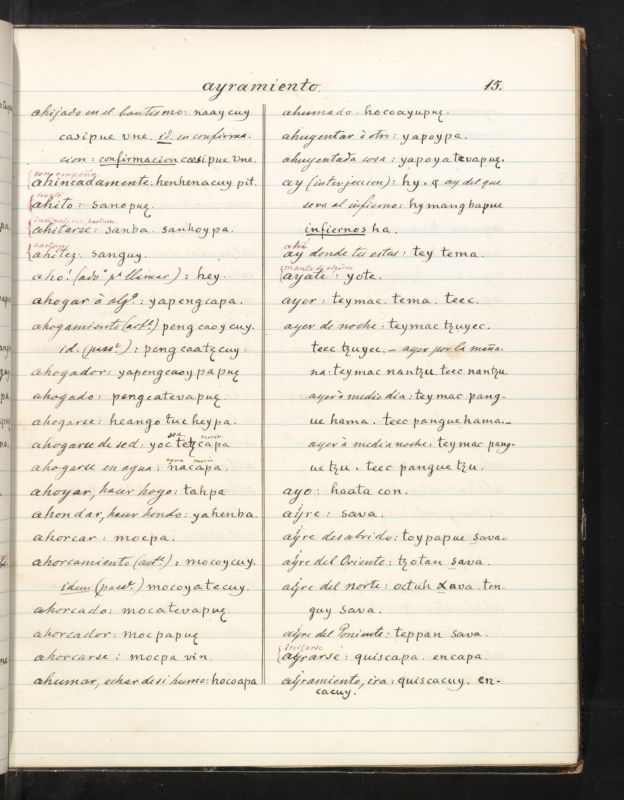 ayramiento.
15.
ahijado en el bautismo: naay cuy
casipue vne. id. en confirma-
cion: confirmacion casipue vne.
con empeño
ahincadamente: henhenacuy pit.
harto
ahito: sanopuę.
indigestarse, hartarse
ahitarse: sanba. sanhoypa.
hartazgo
ahitez: sanguy.
aho! (advo pa llamar): hey.
ahogar ò algo: yapengcapa.
ahogamiento (acto): pengcaoycuy.
id. (passo): pengcaatęcuy.
ahogador: yapengcaoypapuę
ahogado: pengcatevapuę.
ahogarse: heango tucheypa.
sed morir
ahogarse de sed: yoc tetzcapa
agua morir
ahogarse en agua: nacapa.
ahoyar, hacer hoyo: tahpa
ahondar, hacer hondo: yahenba.
ahorcar: mocpa.
ahorcamiento (acto): mocoycuy.
idem (passo) mocoyatecuy.
ahorcado: mocatevapuę.
ahorcador: mocpapuę
ahorcarse: mocpa vin.
ahumar, echar de si humo: hocoapa
ahumado: hocoayupuę.
ahuyentar à otro: yapoypa.
ahuyentada cosa: yapoyatevapuę.
ay (interjeccion): hy. q ay del que
seva al infierno: hymangbapue
infiernos ha.
ahí
ay donde tu estas: tey tema.
manta de algodon
ayate: yote.
ayer: teymac. tema. teec.
ayer de noche: teymac tzuyec.
teec tzuyec. — ayer por la maña-
na: teymac nantzu. teec nantzu.
ayer à medio dia: teymac pang-
ue hama. teec pangue hama. —
ayer à media noche: teymac pang-
ue tzu. teec pangue tzu.
ayo: haata con.
ayre: sava.
ayre desabrido: toypapue sava.
ayre del Oriente: tzotan sava.
ayre del norte: octuh xava. ten-
guy sava.
ayre del Poniente: teppan sava.
irritarse
ayrarse: quiscapa. encapa.
ayramiento, ira: quiscacuy. en-
cacuy.